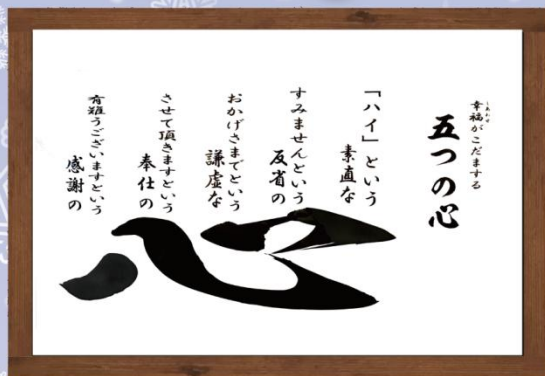 幸福がこだまする
しあわせ
五つの心
「ハイ」という
素直な
すみませんという
反省の
おかげさまでという
謙虚な
させて頂きますという
奉仕の
有難うございますという
感謝の
心